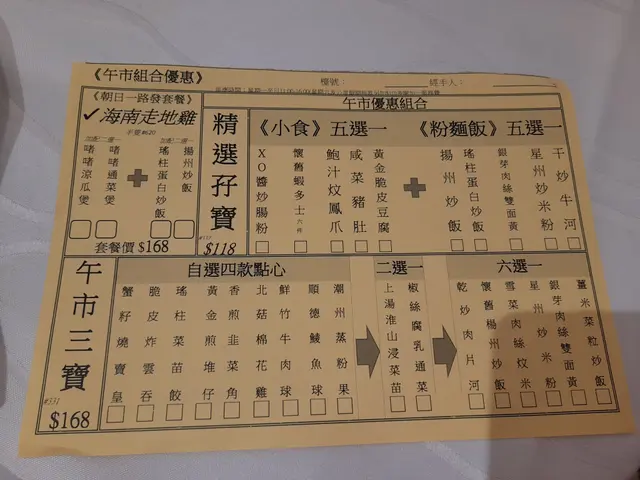 《午市組合優惠》
檯號：
經手人：
《朝日一路發套餐》
✓海南走地雞
手號 #620
加配二選一
加配二選一
啫啫涼瓜煲
啫啫通菜煲
+
瑤柱蛋白炒飯
揚州炒飯
套餐價 $168
精選孖寶
$118
午市優惠組合
《小食》五選一
《粉麵飯》五選一
XO醬炒腸粉
懷舊蝦多士 六件
鮑汁炆鳳爪
咸菜豬肚
黃金脆皮豆腐
+
揚州炒飯
瑤柱蛋白炒飯
銀芽肉絲雙面黃
星州炒米粉
干炒牛河
午市三寶
#331
$168
自選四款點心
二選一
六選一
蟹籽燒賣皇
脆皮炸雲吞
瑤柱菜苗餃
黃金煎堆仔
香煎韭菜角
北菇棉花雞
鮮竹牛肉球
順德鯪魚球
潮州蒸粉果
上湯淮山浸菜苗
椒絲腐乳通菜
乾炒肉片河
懷舊楊州炒飯
雪菜肉絲炆米
星州炒米粉
銀芽肉絲雙面黃
薑米菜粒炒飯